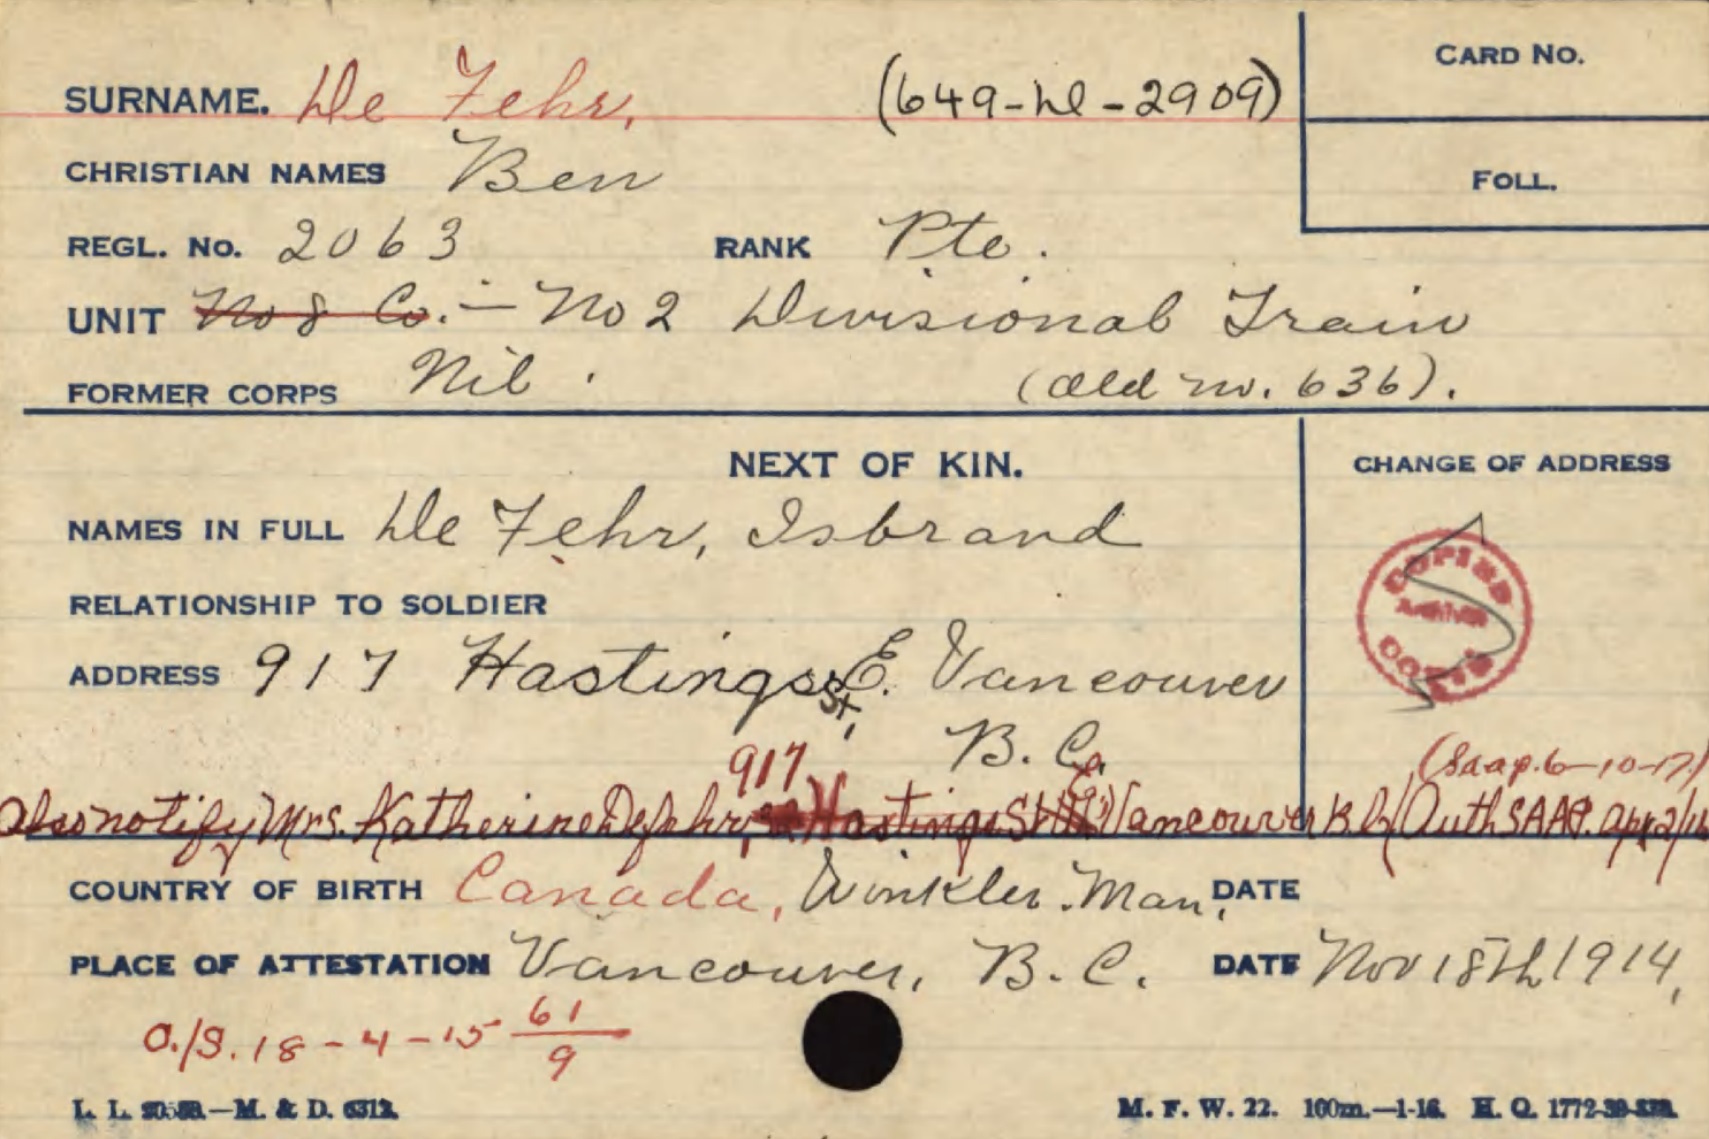 CARD NO.
SURNAME. De Fehr, (649-D-2909)
CHRISTIAN NAMES Ben
FOLL.
REGL. NO. 2063 RANK Pte.
UNIT No 8 Co. – No 2 Divisional Train
FORMER CORPS Nil. (old no. 636).
NEXT OF KIN. CHANGE OF ADDRESS
NAMES IN FULL De Fehr, Isbrand
COPIED
RELATIONSHIP TO SOLDIER
ADDRESS 917 Hastings St. E. Vancouver
B.C.
917 (Saap. 6-10-17)
Also notify Mrs. Katherine Defehr, Hastings St E Vancouver B.C. (Auth SAAP. Apr 2/16
COUNTRY OF BIRTH Canada, Winkler. Man. DATE
PLACE OF ATTESTATION Vancouver, B.C. DATE Nov 18th 1914,
O./S. 18-4-15 61/9
L. L. —M. & D. 6312.
M. F. W. 22. 100m.—1-16. H. Q. 1772-39-